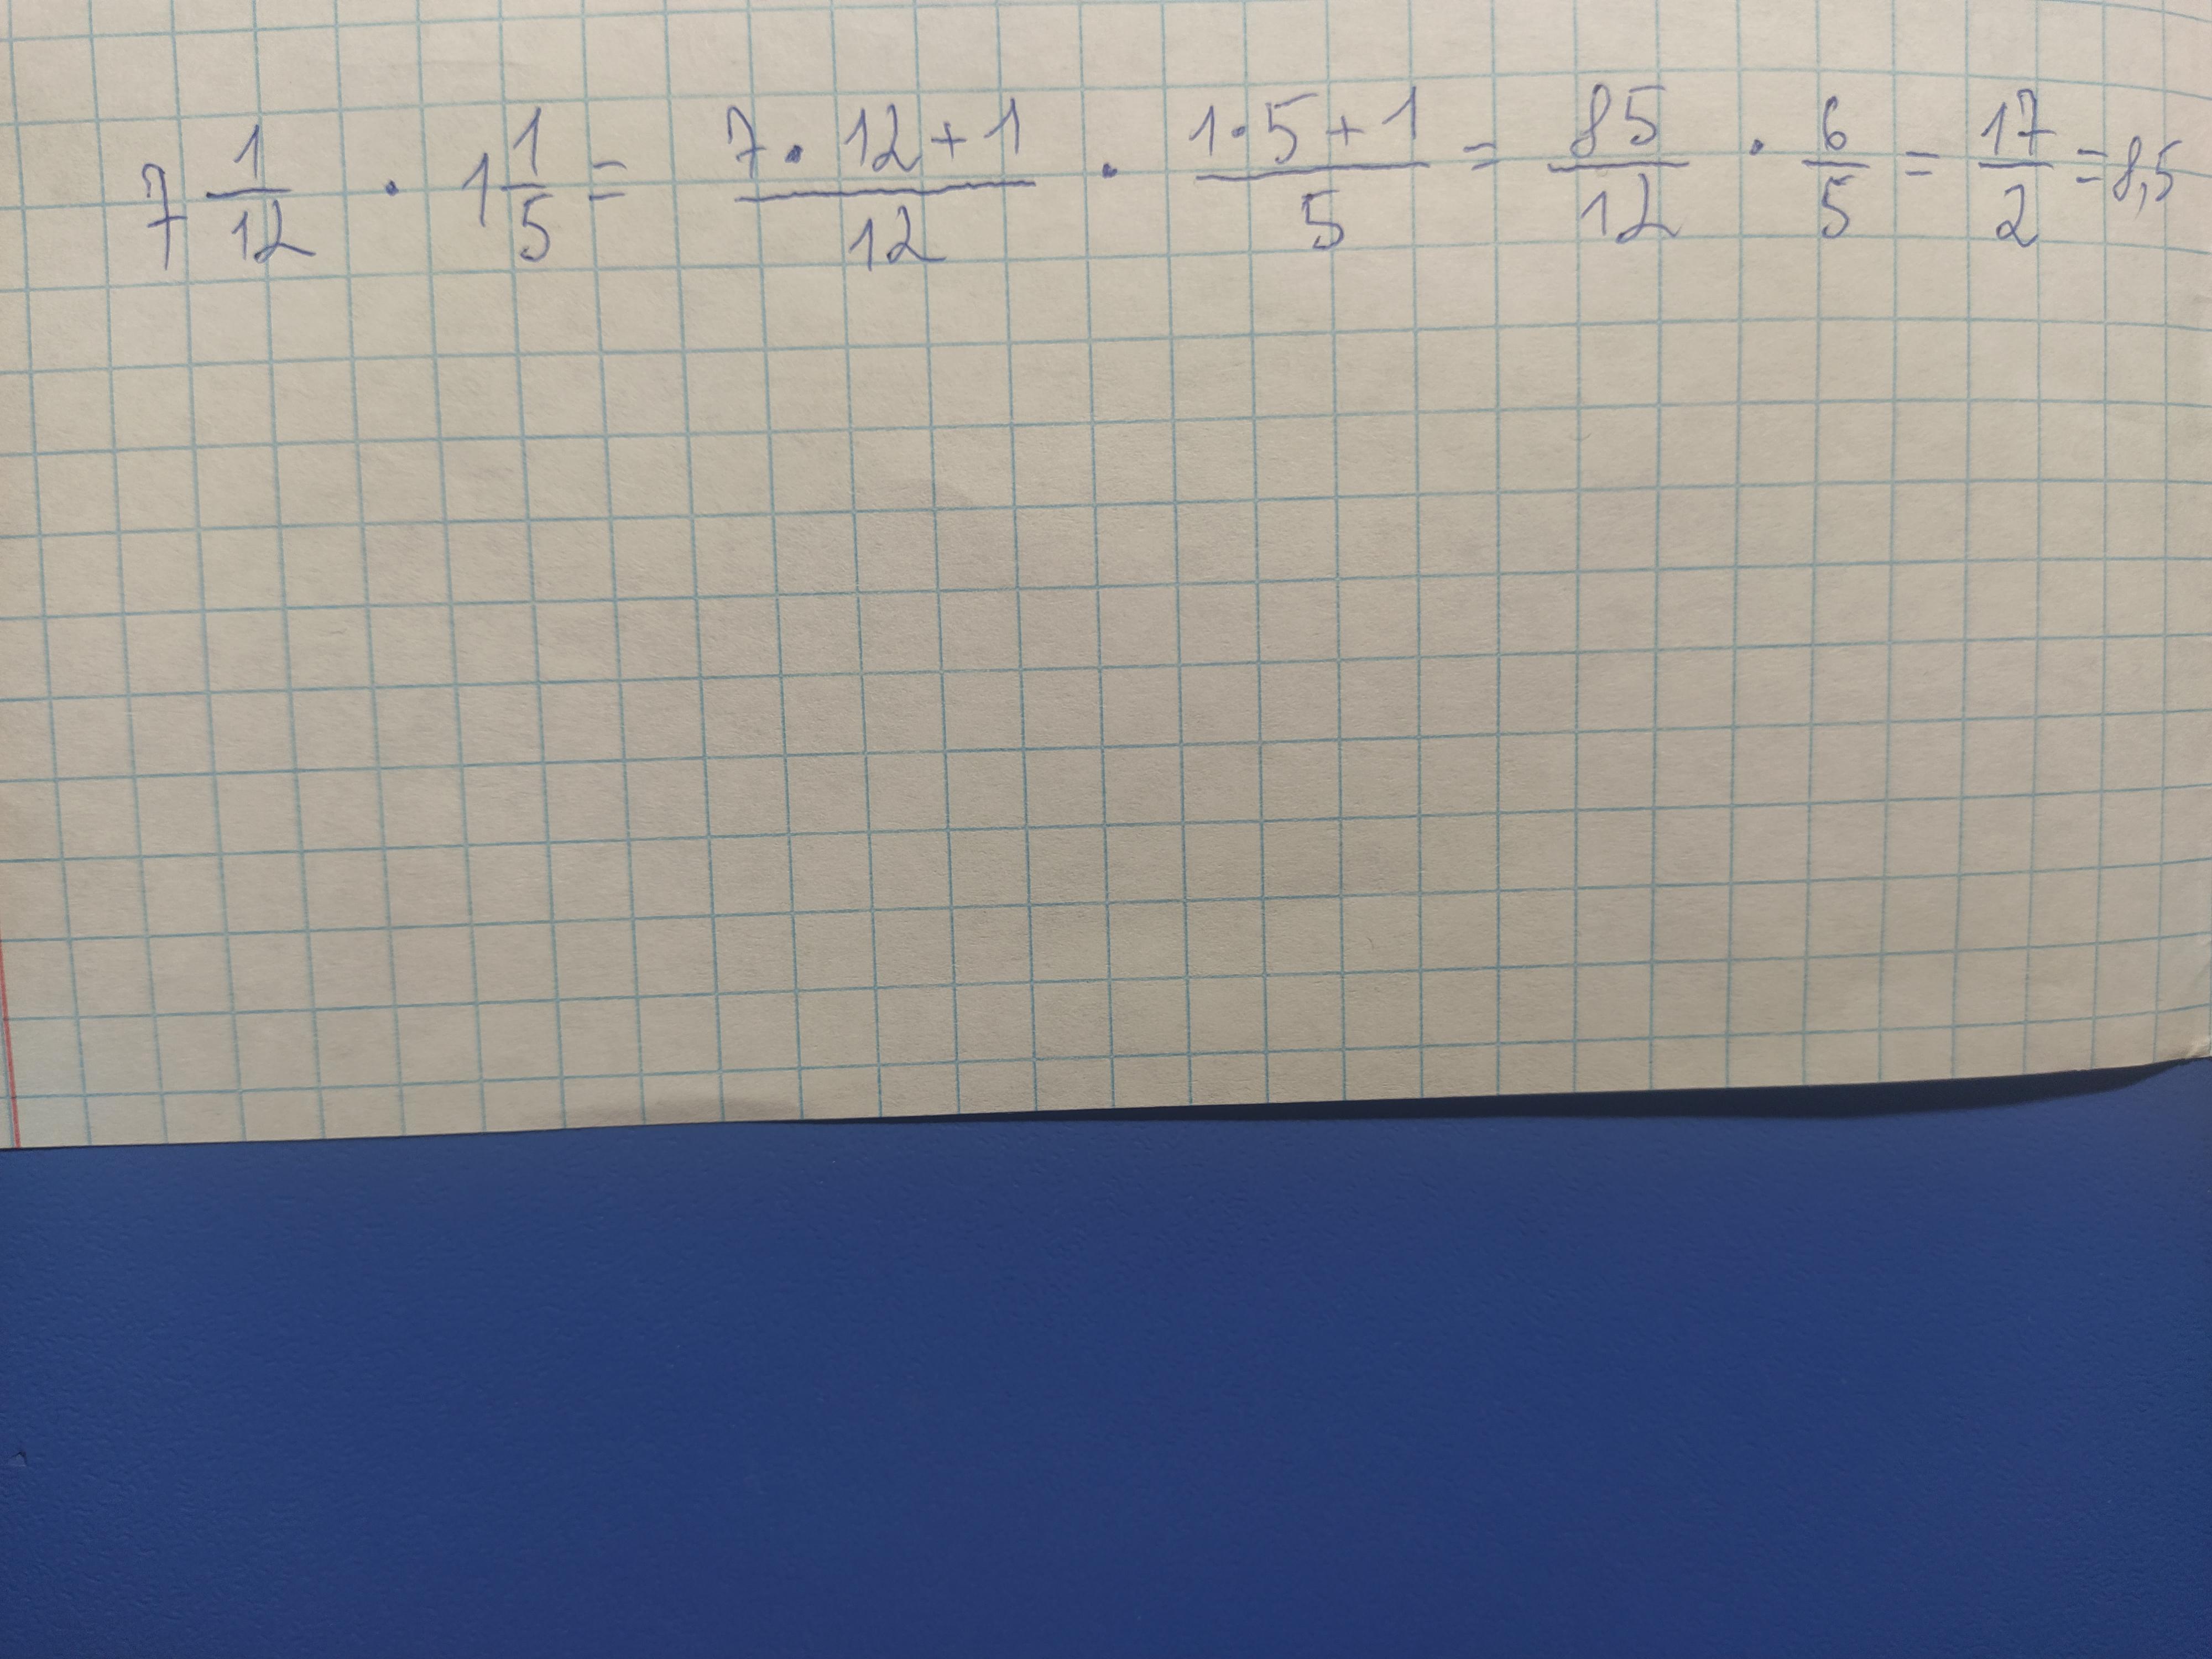 7 1/12 · 1 1/5 = (7 · 12 + 1)/12 · (1 · 5 + 1)/5 = 85/12 · 6/5 = 17/2 = 8,5